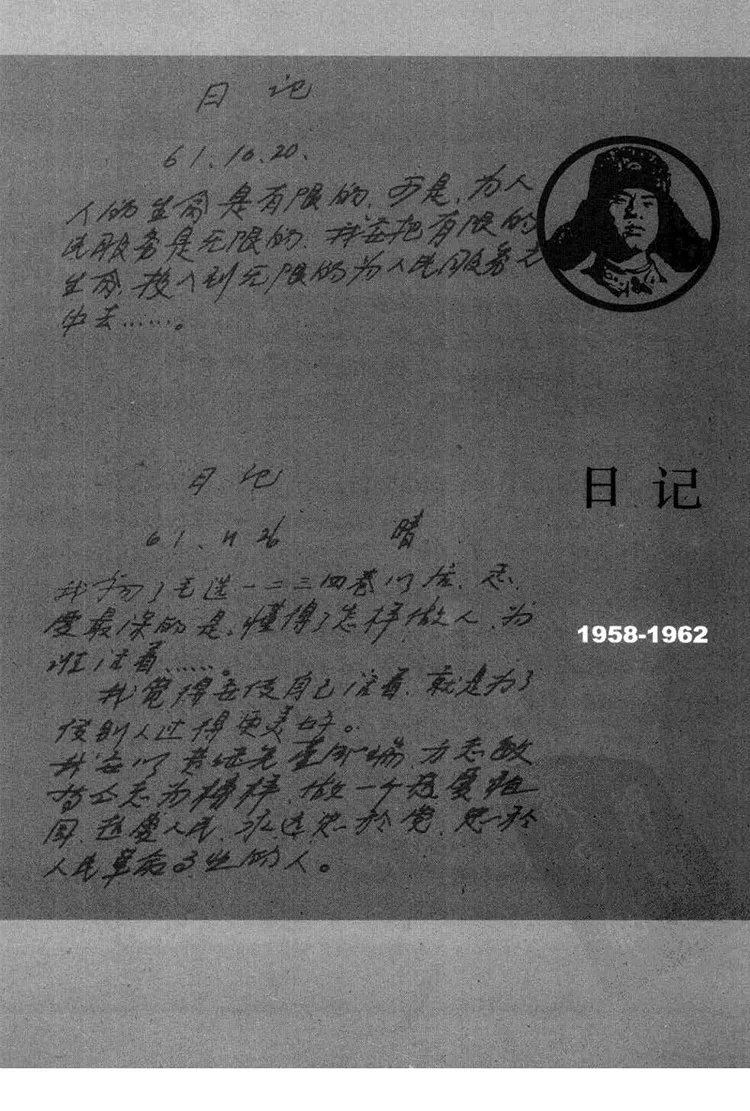 日 记
61.10.20.
人的生命是有限的,可是,为人
民服务是无限的,我要把有限的
生命,投入到无限的为人民服务之
中去……。
日 记
61.11.26 晴
我学习了毛选一二三四卷以后,感
受最深的是,懂得了怎样做人,为
谁活着……。
我觉得要使自己活着,就是为了
使别人过得更美好。
我要以黄继光、董存瑞、方志敏
等同志为榜样,做一个热爱祖
国,热爱人民,永远忠於党,忠於
人民革命事业的人。
日 记
1958-1962